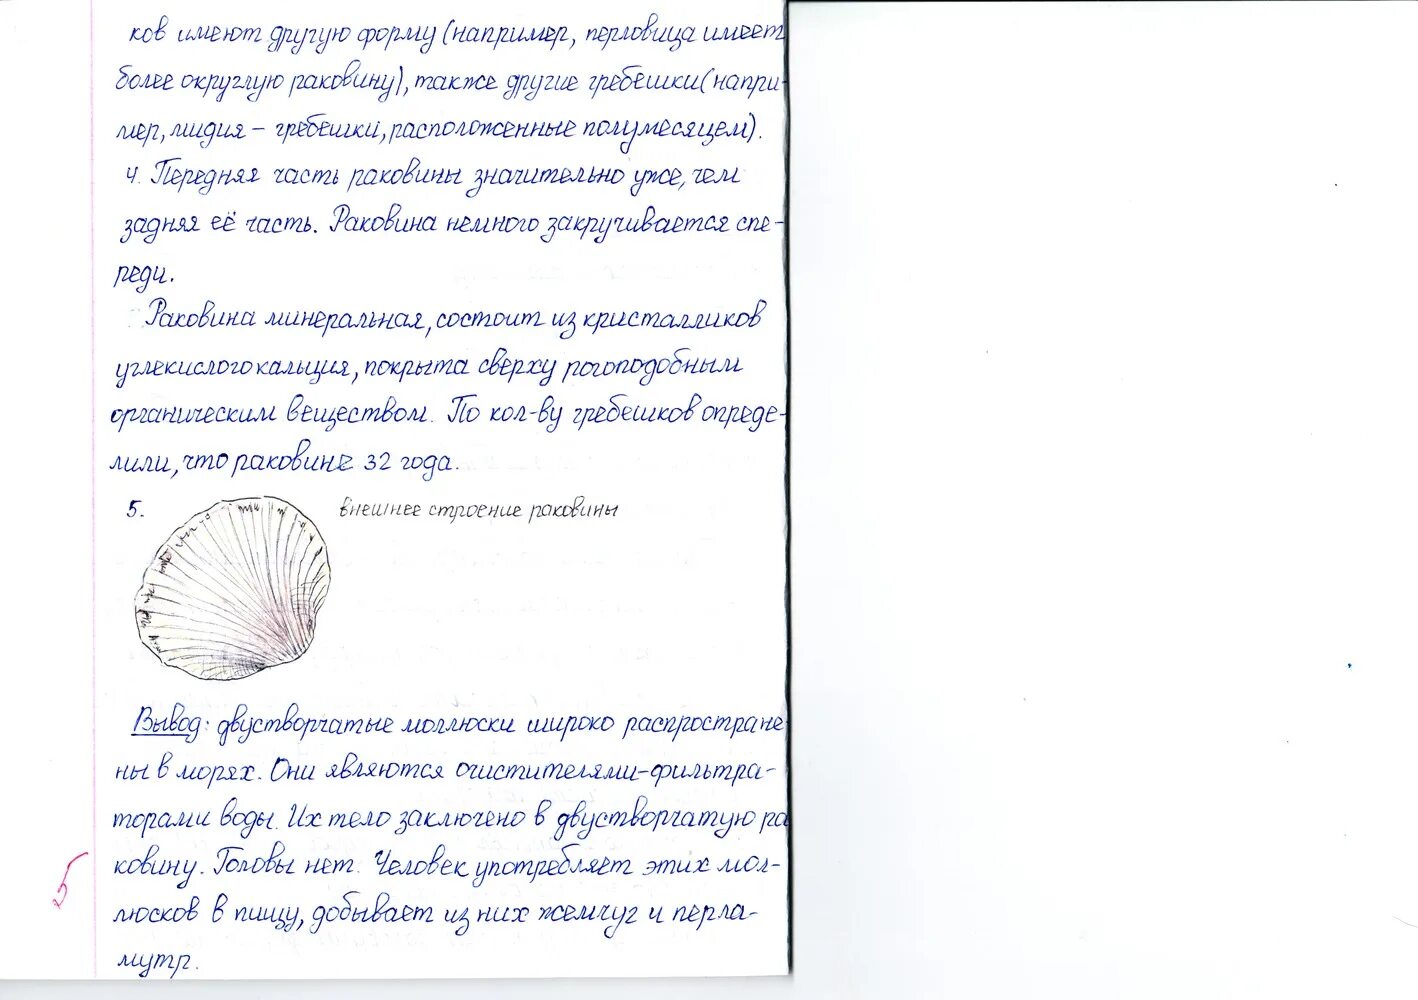 ков имеют другую форму (например, перловица имеет
более округлую раковину), также другие гребешки (напри-
мер, мидия – гребешки, расположенные полумесяцем).
4. Передняя часть раковины значительно уже, чем
задняя её часть. Раковина немного закручивается спе-
реди.
Раковина минеральная, состоит из кристалликов
углекислого кальция, покрыта сверху рогоподобным
органическим веществом. По кол-ву гребешков опреде-
лили, что раковине 32 года.
5. внешнее строение раковины
Вывод: двустворчатые моллюски широко распростране
ны в морях. Они являются очистителями-фильтра-
торами воды. Их тело заключено в двустворчатую ра
ковину. Головы нет. Человек употребляет этих мол-
люсков в пищу, добывает из них жемчуг и перла-
мутр.
5